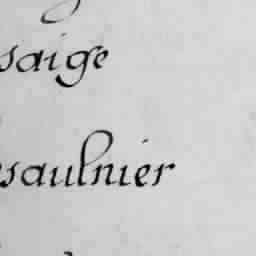 saige
saulnier